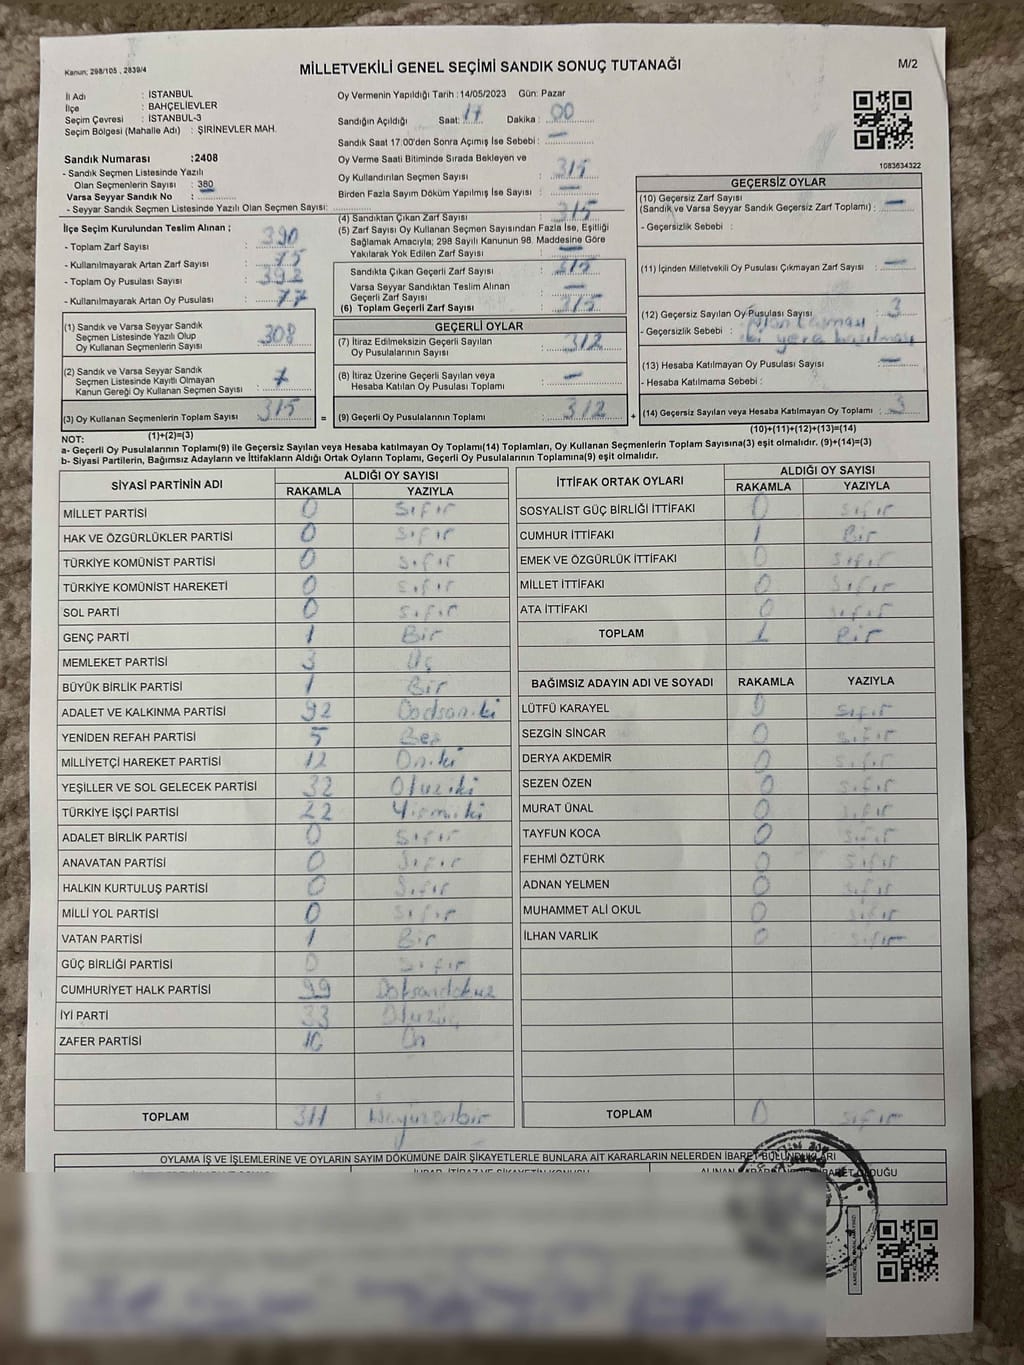 Kanun; 298/105 , 2839/4
MİLLETVEKİLİ GENEL SEÇİMİ SANDIK SONUÇ TUTANAĞI
M/2
İl Adı : İSTANBUL
İlçe : BAHÇELİEVLER
Seçim Çevresi : İSTANBUL-3
Seçim Bölgesi (Mahalle Adı) : ŞİRİNEVLER MAH.
Sandık Numarası :2408
- Sandık Seçmen Listesinde Yazılı
Olan Seçmenlerin Sayısı : 380
Varsa Seyyar Sandık No :
- Seyyar Sandık Seçmen Listesinde Yazılı Olan Seçmen Sayısı:
İlçe Seçim Kurulundan Teslim Alınan ;
- Toplam Zarf Sayısı : 390
- Kullanılmayarak Artan Zarf Sayısı : 75
- Toplam Oy Pusulası Sayısı : 392
- Kullanılmayarak Artan Oy Pusulası : 77
(1) Sandık ve Varsa Seyyar Sandık
Seçmen Listesinde Yazılı Olup
Oy Kullanan Seçmenlerin Sayısı : 308
(2) Sandık ve Varsa Seyyar Sandık
Seçmen Listesinde Kayıtlı Olmayan
Kanun Gereği Oy Kullanan Seçmen Sayısı : 7
(3) Oy Kullanan Seçmenlerin Toplam Sayısı : 315
(1)+(2)=(3)
Oy Vermenin Yapıldığı Tarih :14/05/2023 Gün: Pazar
Sandığın Açıldığı Saat: 17 Dakika : 00
Sandık Saat 17:00'den Sonra Açımış İse Sebebi : —
Oy Verme Saati Bitiminde Sırada Bekleyen ve
Oy Kullandırılan Seçmen Sayısı : 315
Birden Fazla Sayım Döküm Yapılmış İse Sayısı : —
(4) Sandıktan Çıkan Zarf Sayısı : 315
(5) Zarf Sayısı Oy Kullanan Seçmen Sayısından Fazla İse, Eşitliği
Sağlamak Amacıyla; 298 Sayılı Kanunun 98. Maddesine Göre
Yakılarak Yok Edilen Zarf Sayısı : —
Sandıkta Çıkan Geçerli Zarf Sayısı : 315
Varsa Seyyar Sandıktan Teslim Alınan
Geçerli Zarf Sayısı : —
(6) Toplam Geçerli Zarf Sayısı : 315
GEÇERLİ OYLAR
(7) İtiraz Edilmeksizin Geçerli Sayılan
Oy Pusulalarının Sayısı : 312
(8) İtiraz Üzerine Geçerli Sayılan veya
Hesaba Katılan Oy Pusulası Toplamı : —
= (9) Geçerli Oy Pusulalarının Toplamı : 312 +
1083634322
GEÇERSİZ OYLAR
(10) Geçersiz Zarf Sayısı
(Sandık ve Varsa Seyyar Sandık Geçersiz Zarf Toplamı) : —
- Geçersizlik Sebebi :
(11) İçinden Milletvekili Oy Pusulası Çıkmayan Zarf Sayısı : —
(12) Geçersiz Sayılan Oy Pusulası Sayısı : 3
- Geçersizlik Sebebi : Alan taşması
iki yere basılması
(13) Hesaba Katılmayan Oy Pusulası Sayısı : —
- Hesaba Katılmama Sebebi :
(14) Geçersiz Sayılan veya Hesaba Katılmayan Oy Toplamı : 3
(10)+(11)+(12)+(13)=(14)
NOT:
a- Geçerli Oy Pusulalarının Toplamı(9) ile Geçersiz Sayılan veya Hesaba katılmayan Oy Toplamı(14) Toplamları, Oy Kullanan Seçmenlerin Toplam Sayısına(3) eşit olmalıdır. (9)+(14)=(3)
b- Siyasi Partilerin, Bağımsız Adayların ve İttifakların Aldığı Ortak Oyların Toplamı, Geçerli Oy Pusulalarının Toplamına(9) eşit olmalıdır.
SİYASİ PARTİNİN ADI ALDIĞI OY SAYISI
RAKAMLA YAZIYLA
MİLLET PARTİSİ 0 Sıfır
HAK VE ÖZGÜRLÜKLER PARTİSİ 0 Sıfır
TÜRKİYE KOMÜNİST PARTİSİ 0 Sıfır
TÜRKİYE KOMÜNİST HAREKETİ 0 Sıfır
SOL PARTİ 0 Sıfır
GENÇ PARTİ 1 Bir
MEMLEKET PARTİSİ 3 Üç
BÜYÜK BİRLİK PARTİSİ 1 Bir
ADALET VE KALKINMA PARTİSİ 92 Doksaniki
YENİDEN REFAH PARTİSİ 5 Beş
MİLLİYETÇİ HAREKET PARTİSİ 12 Oniki
YEŞİLLER VE SOL GELECEK PARTİSİ 32 Otuziki
TÜRKİYE İŞÇİ PARTİSİ 22 Yirmiki
ADALET BİRLİK PARTİSİ 0 Sıfır
ANAVATAN PARTİSİ 0 Sıfır
HALKIN KURTULUŞ PARTİSİ 0 Sıfır
MİLLİ YOL PARTİSİ 0 Sıfır
VATAN PARTİSİ 1 Bir
GÜÇ BİRLİĞİ PARTİSİ 0 Sıfır
CUMHURİYET HALK PARTİSİ 99 Doksandokuz
İYİ PARTİ 33 Otuzüç
ZAFER PARTİSİ 10 On
TOPLAM 311 Üçyüzonbir
İTTİFAK ORTAK OYLARI ALDIĞI OY SAYISI
RAKAMLA YAZIYLA
SOSYALİST GÜÇ BİRLİĞİ İTTİFAKI 0 Sıfır
CUMHUR İTTİFAKI 1 Bir
EMEK VE ÖZGÜRLÜK İTTİFAKI 0 Sıfır
MİLLET İTTİFAKI 0 Sıfır
ATA İTTİFAKI 0 Sıfır
TOPLAM 1 Bir
BAĞIMSIZ ADAYIN ADI VE SOYADI RAKAMLA YAZIYLA
LÜTFÜ KARAYEL 0 Sıfır
SEZGİN SİNCAR 0 Sıfır
DERYA AKDEMİR 0 Sıfır
SEZEN ÖZEN 0 Sıfır
MURAT ÜNAL 0 Sıfır
TAYFUN KOCA 0 Sıfır
FEHMİ ÖZTÜRK 0 Sıfır
ADNAN YELMEN 0 Sıfır
MUHAMMET ALİ OKUL 0 Sıfır
İLHAN VARLIK 0 Sıfır
TOPLAM 0 Sıfır
OYLAMA İŞ VE İŞLEMLERİNE VE OYLARIN SAYIM DÖKÜMÜNE DAİR ŞİKAYETLERLE BUNLARA AİT KARARLARIN NELERDEN İBARET BULUNDUKLARI